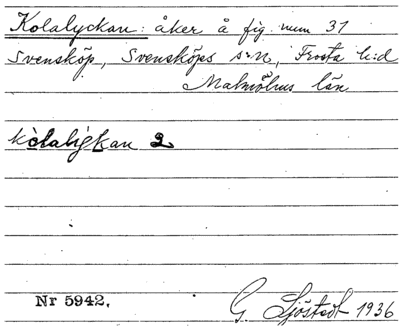 Kolalyckan: åker å fig. num 31
Svensköp, Svensköps s:n, Frosta h:d
Malmöhus län
Nr 5942.
G. Sjöstedt 1936